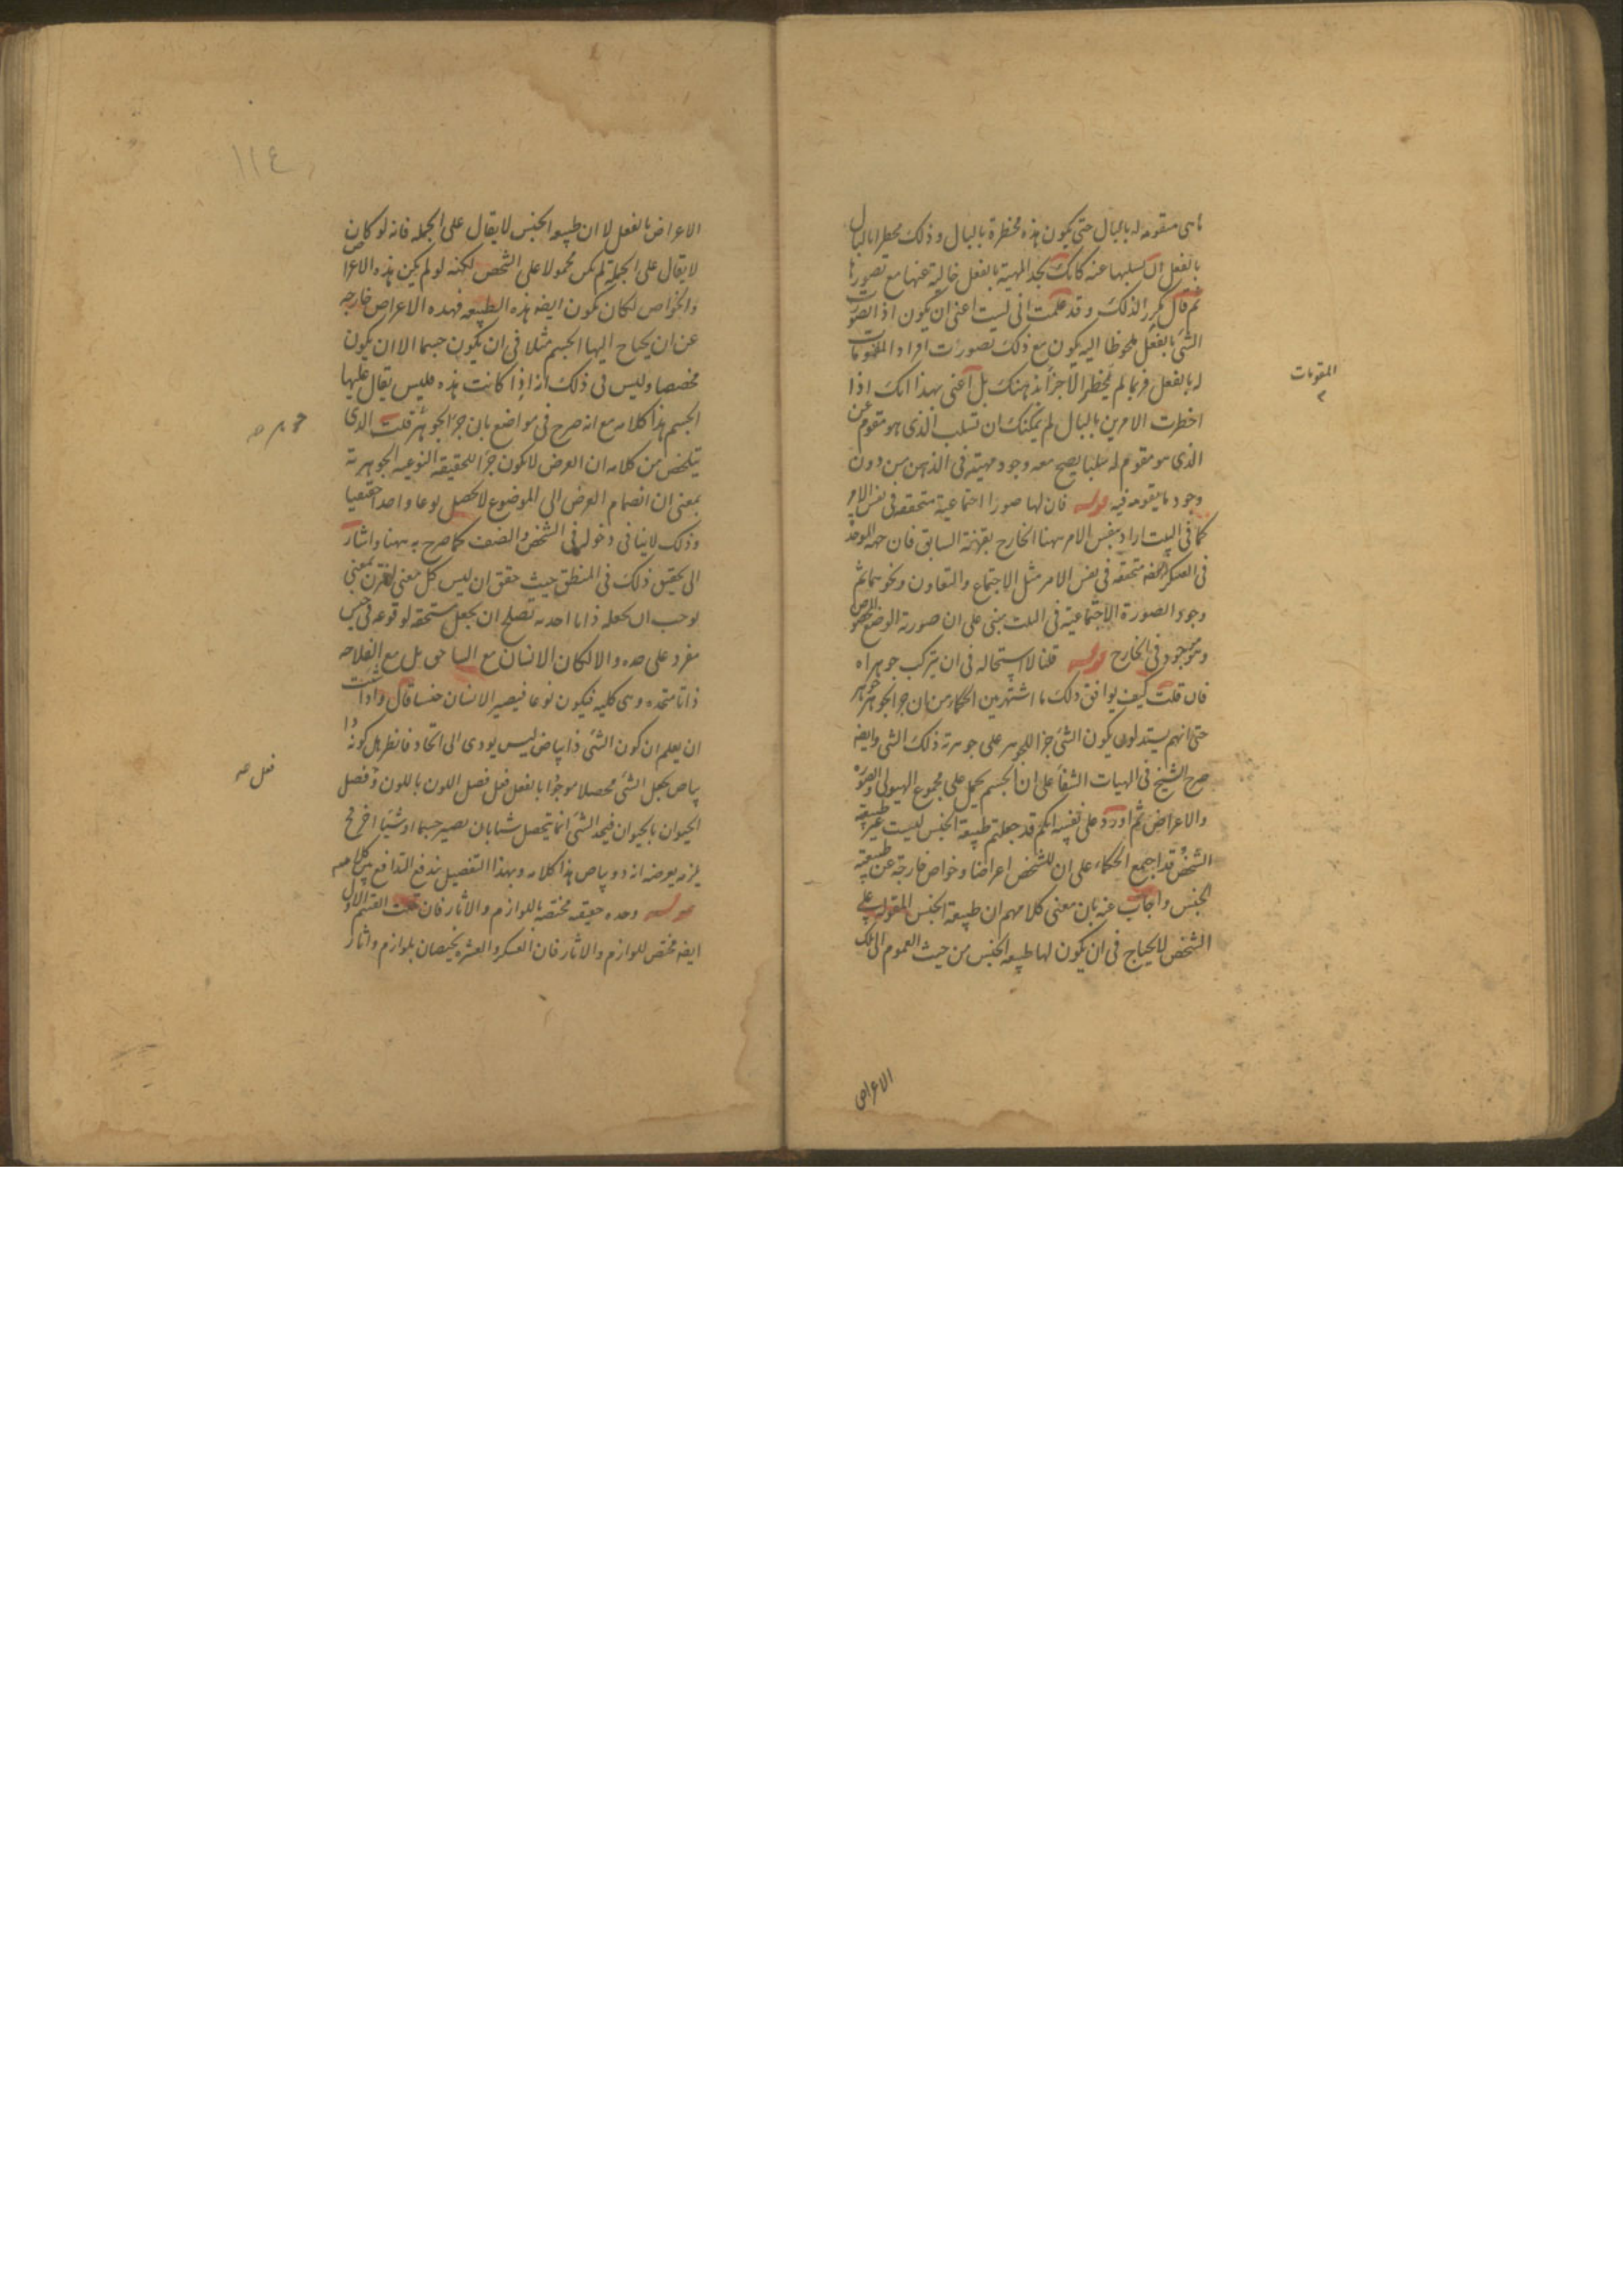 ما هى مقومة له بالبال حتى يكون هذه مخطرة بالبال وذلك مخطرا بالبال
بالفعل ان تسلبها عنه كانك تجد المهية بالفعل خالية عنها مع تصورها
ثم قال مكررا لذلك وقد علمت انى لست اعنى ان يكون اذا تصورت
الشئ بالفعل ملحوظا اليه يكون مع ذلك تصورات افراد المقومات
المقومات
له بالفعل فربما لم يخطر الاجزاء بذهنك بل اعنى بهذا انك اذا
اخطرت الامرين بالبال لم يمكنك ان تسلب الذى هو مقوم عن
الذى هو مقوم له سلبا يصح معه وجود مهيته فى الذهن من دون
وجود ما يقومه فيه قوله فان لها صورا اجتماعية متحققه فى نفس الامر
كما فى البيت اراد بنفس الامر ههنا الخارج بقرينة السابق فان جهه الوحده
فى العسكر متحققه فى نفس الامر مثل الاجتماع والتعاون ونحوهما ثم
وجود الصورة الاجتماعية فى البيت مبنى على ان صورته الوضع المخصوص
وهو موجود فى الخارج قوله قلنا لا استحاله فى ان يتركب جوهر اه
فان قلت كيف يوافق ذلك ما اشتهر بين الحكماء من ان جزء الجوهر جوهر
حتى انهم يستدلون بكون الشئ جزء للجوهر على جوهرية ذلك الشئ وايضه
صرح الشيخ فى الهيات الشفاء على ان الجسم يحمل على مجموع الهيولى والصورة
والاعراض ثم اورد على نفسه انكم قد جعلتم طبيعة الجنس ليست غير طبيعة
الشخص وقد اجمع الحكماء على ان للشخص اعراضا وخواص خارجة عن طبيعة
الجنس واجاب عنه بان معنى كلامهم ان طبيعة الجنس المقوله على
الشخص لا يحتاج فى ان يكون لها طبيعه الجنس من حيث العموم الى تلك
الاعراض
١١٤
الاعراض بالفعل لا ان طبيعه الجنس لا يقال على الجمله فانه لو كان
لا يقال على الجمله لم يكن محمولا على الشخص لكنه لو لم يكن هذه الاعراض
والخواص لكان يكون ايضه هذه الطبيعه فهذه الاعراض خارجه
عن ان يحتاج اليها الجسم مثلا فى ان يكون جسما الا ان يكون
مخصصا وليس فى ذلك انه اذا كانت هذه فليس يقال عليها
الجسم هذا كلامه مع انه صرح فى مواضع بان جزء الجوهر قلت الذى
جوهر صه
يتلخص من كلامه ان العرض لا يكون جزءا للحقيقه النوعيه الجوهرية
بمعنى ان انضمام العرض الى الموضوع لا يحصل نوعا واحدا حقيقيا
وذلك لا ينافى دخوله فى الشخص والصنف كما صرح به ههنا واشار
الى تحقيق ذلك فى المنطق حيث حقق ان ليس كل معنى يقترن بمعنى
يوجب ان يجعله ذاتا احدية تصلح ان يجعل مستحقه لوقوعه فى جنس
مفرد على حده والا لكان الانسان مع البياض بل مع الفلاحه
ذاتا متحده وهى كليه فيكون نوعا فيصير الانسان جنسا قال واذا شئت
ان يعلم ان كون الشئ ذا بياض ليس يودى الى اتحاد فانظر هل كونه ذا
بياض يجعل الشئ محصلا موجودا بالفعل فعل فصل اللون باللون وفصل
فعل صه
الحيوان بالحيوان فيجد الشئ انما يتحصل شيئا بان يصير جسما او شيئا اخر ح
يلزمه يعرضه انه ذو بياض هذا كلامه وبهذا التفصيل يندفع التدافع بين كلاميه
قوله وحده حقيقيه مختصه باللوازم والاثار فان قلت القسم الاول
ايضه مختص للوازم والاثار فان العسكر والعشره يختصان بلوازم واثار